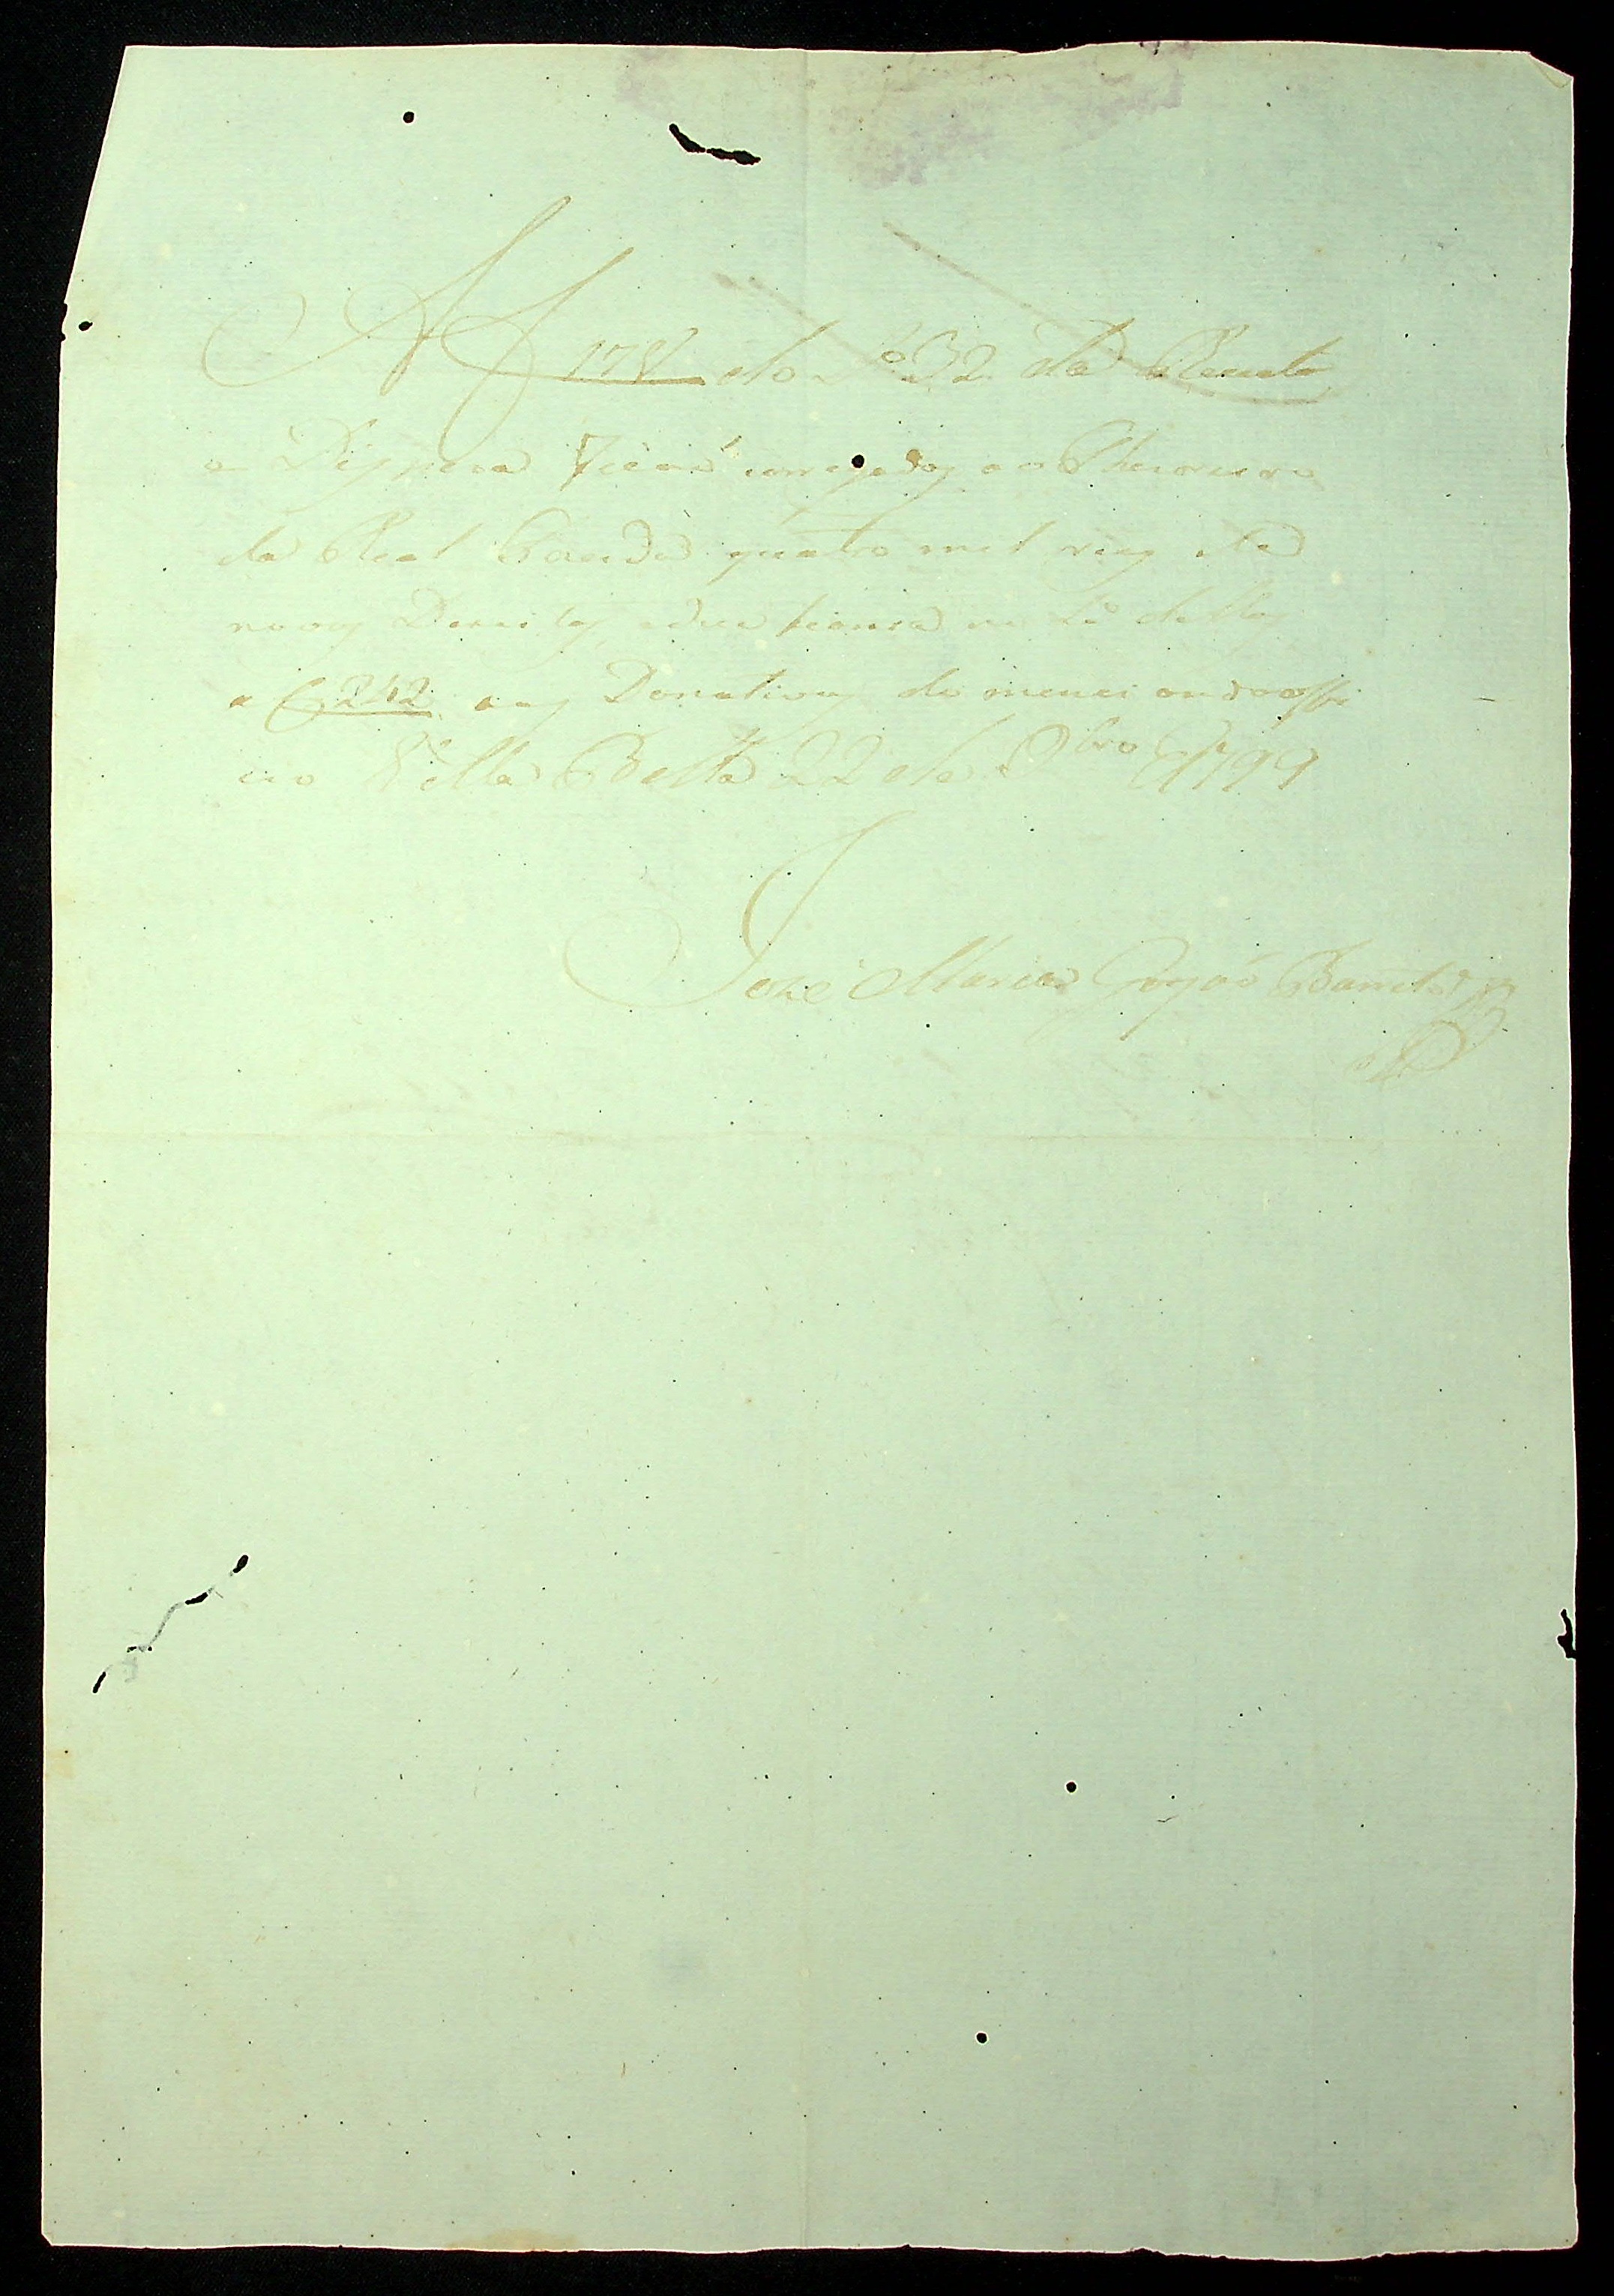 Af 178 do L.o 32 da Receita
e Despeza ficaõ carregados ao Thezoureiro
da Real Fazenda quatro mil reis de
novos Direitos, e deu fiança no L.o delles
a f 242 aos Donativos do mencionado offi
cio Villa Bella 22 de 9bro de 1799
Jozé Maria Goyaõ Barreto